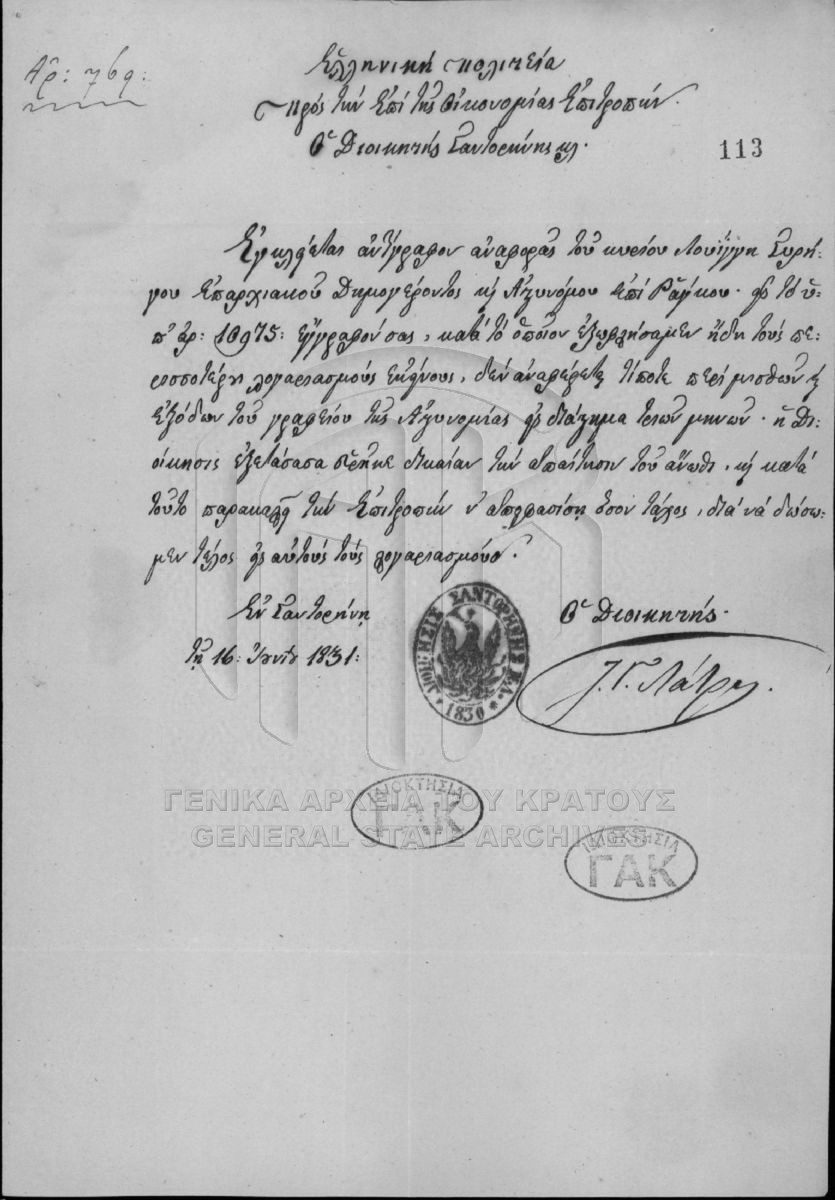 Ἀρ: 769:
Ἑλληνική Πολιτεία
Πρός τήν Ἐπί τῆς Οἰκονομίας Ἐπιτροπήν.
Ὁ Διοικητής Σαντορήνης κλ.
113
Ἐγκλείεται ἀντίγραφον ἀναφορᾶς τοῦ κυρίου Λουίγγη Συρή-
γου Ἐπαρχιακοῦ Δημογέροντος κ Ἀστυνόμου ἐπί. εἰς τό ὑ-
π' ἀρ: 10975: ἔγγραφόν σας, κατά τό ὁποῖον ἐξωφλήσαμεν ἤδη τούς πε-
ρισσοτέρους λογαριασμούς ἐκείνους, δέν ἀναφέρεται τίποτε περί μισθῶν κ
ἐξόδων τοῦ γραφείου τῆς Ἀστυνομίας εἰς διάστημα τριῶν μηνῶν. ἡ Δι-
οίκησις ἐξετάσασα εὕρηκε δικαίαν τήν ἀπαίτησιν τοῦ ἄνωθι, κ κατά
τοῦτο παρακαλεῖ τήν Ἐπιτροπήν ν' ἀποφασίσῃ ὅσον τάχος, διά νά δώσω-
μεν τέλος εἰς αὐτούς τούς λογαριασμούς.
Ἐν Σαντορήνῃ
τῇ 16: Ἰουνίου 1831:
Ὁ Διοικητής.
Ι. Γ. Λάτρης.
ΔΙΟΙΚΗΣΙΣ ΣΑΝΤΟΡΗΝΗΣ Κ.Λ.
1830
ΓΕΝΙΚΑ ΑΡΧΕΙΑ ΤΟΥ ΚΡΑΤΟΥΣ
GENERAL STATE ARCHIVES
ΙΔΙΟΚΤΗΣΙΑ
ΓΑΚ
ΙΔΙΟΚΤΗΣΙΑ
ΓΑΚ